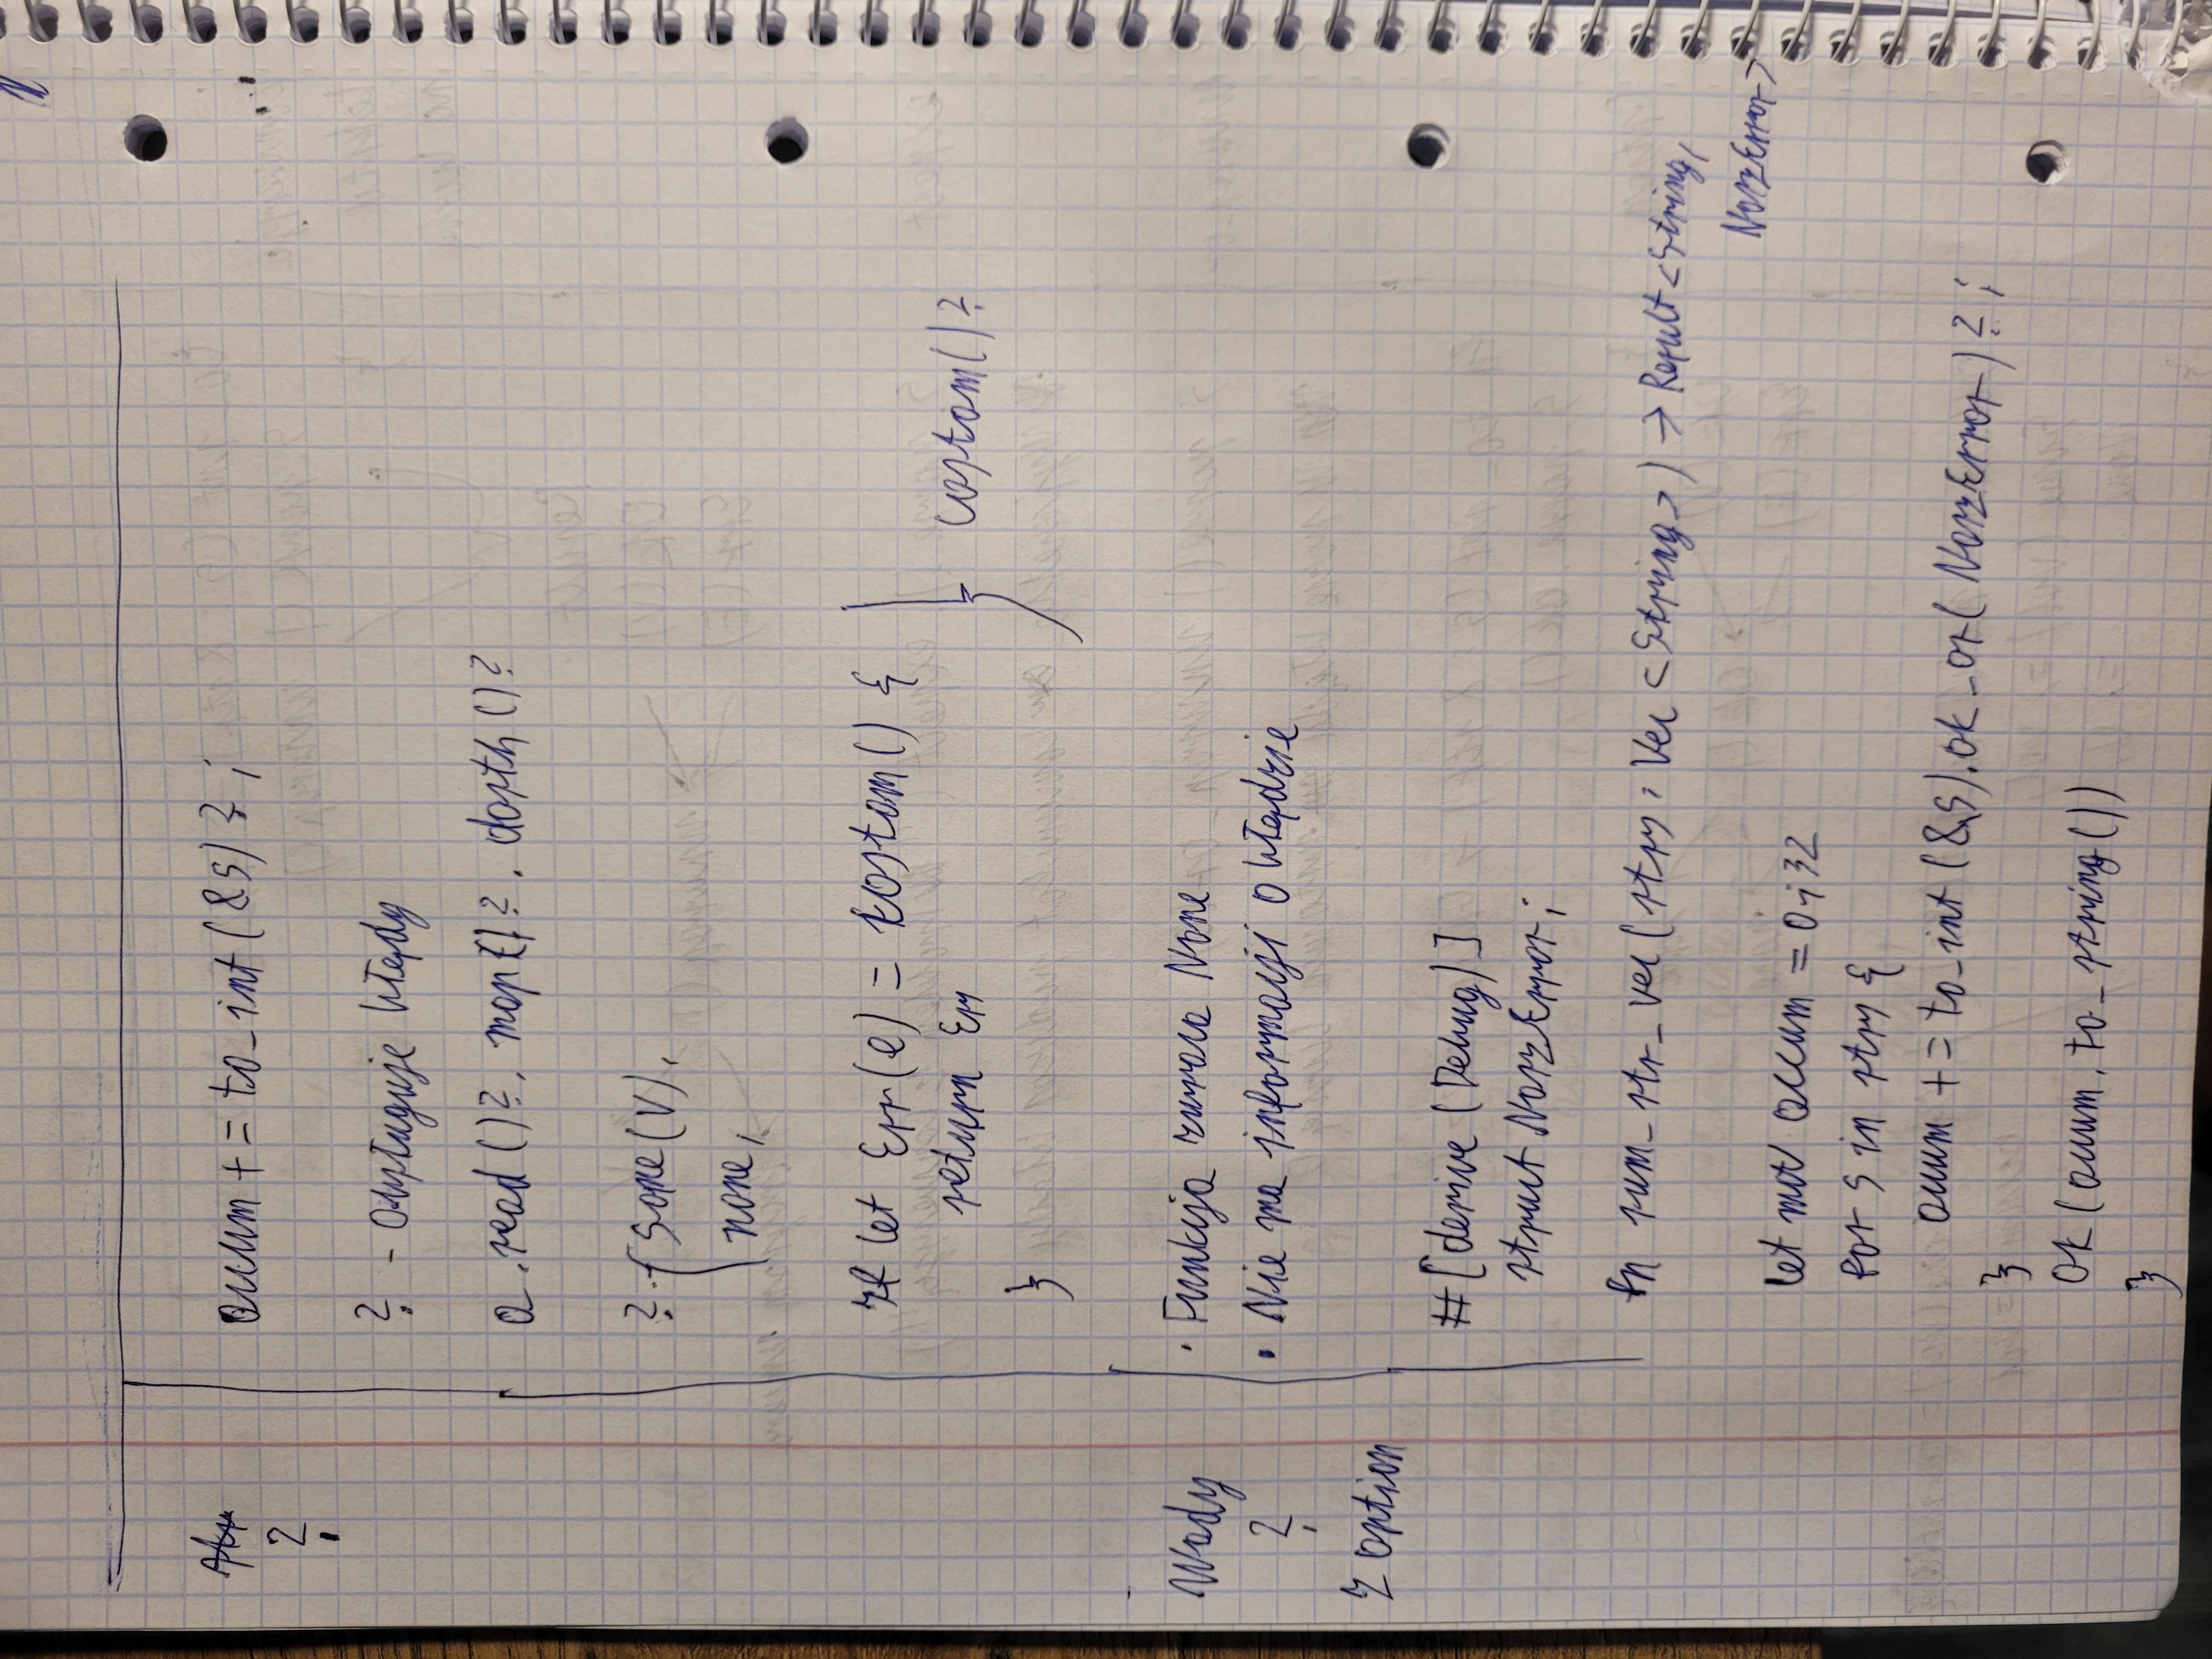 ?
accum += to_int(&s)?;
? - obsługuje błędy
a.read()?.map()?.dasth()?
? { Some(V),
none,
if let Err(e) = kostam() {
return Err
}
costam()?
Wady
?
z option
• Funkcja zwraca None
• Nie ma informacji o błędzie
#[derive(Debug)]
struct NaszError;
fn sum_str_vec(strs: Vec<String>) -> Result<String,
NaszError>
let mut accum = 0i32
for s in strs {
accum += to_int(&s).ok_or(NaszError)?;
}
Ok(accum.to_string())
}